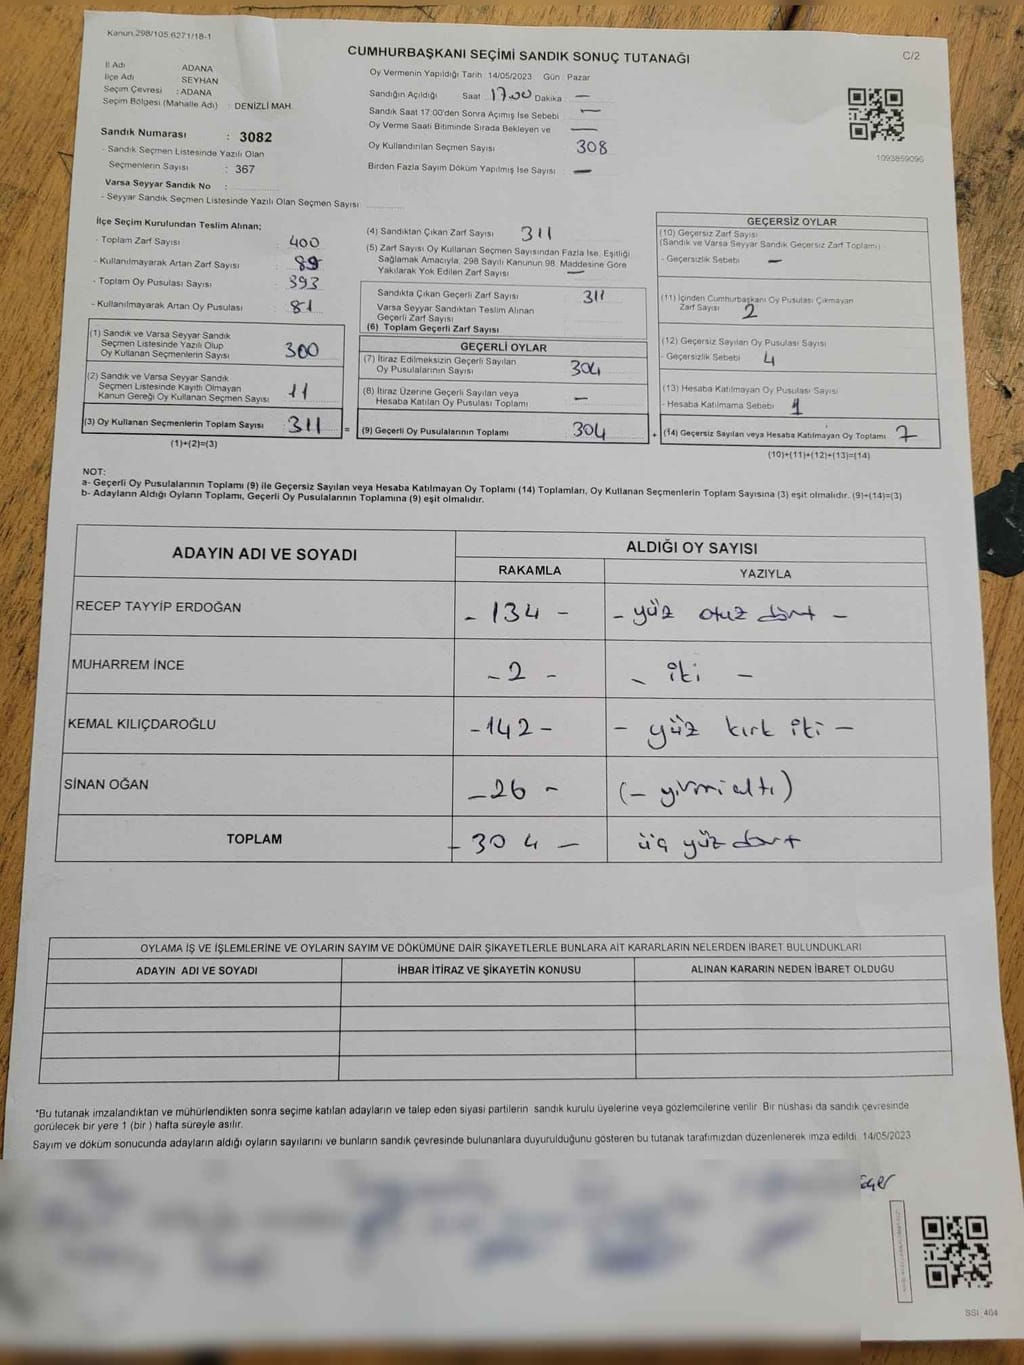 Kanun.298/105.6271/18-1
CUMHURBAŞKANI SEÇİMİ SANDIK SONUÇ TUTANAĞI
C/2
İl Adı ADANA
İlçe Adı SEYHAN
Seçim Çevresi : ADANA
Seçim Bölgesi (Mahalle Adı) : DENİZLİ MAH.
Sandık Numarası : 3082
- Sandık Seçmen Listesinde Yazılı Olan
Seçmenlerin Sayısı : 367
Varsa Seyyar Sandık No :
- Seyyar Sandık Seçmen Listesinde Yazılı Olan Seçmen Sayısı
Oy Vermenin Yapıldığı Tarih 14/05/2023 Gün : Pazar
Sandığın Açıldığı Saat 17.00 Dakika —
Sandık Saat 17:00'den Sonra Açımış İse Sebebi —
Oy Verme Saati Bitiminde Sırada Bekleyen ve —
Oy Kullandırılan Seçmen Sayısı 308
Birden Fazla Sayım Döküm Yapılmış İse Sayısı —
1093859096
İlçe Seçim Kurulundan Teslim Alınan;
- Toplam Zarf Sayısı 400
- Kullanılmayarak Artan Zarf Sayısı 89
- Toplam Oy Pusulası Sayısı 393
- Kullanılmayarak Artan Oy Pusulası 81
(1) Sandık ve Varsa Seyyar Sandık
Seçmen Listesinde Yazılı Olup
Oy Kullanan Seçmenlerin Sayısı 300
(2) Sandık ve Varsa Seyyar Sandık
Seçmen Listesinde Kayıtlı Olmayan
Kanun Gereği Oy Kullanan Seçmen Sayısı 11
(3) Oy Kullanan Seçmenlerin Toplam Sayısı 311 =
(1)+(2)=(3)
(4) Sandıktan Çıkan Zarf Sayısı 311
(5) Zarf Sayısı Oy Kullanan Seçmen Sayısından Fazla İse, Eşitliği
Sağlamak Amacıyla, 298 Sayılı Kanunun 98. Maddesine Göre
Yakılarak Yok Edilen Zarf Sayısı —
Sandıkta Çıkan Geçerli Zarf Sayısı 311
Varsa Seyyar Sandıktan Teslim Alınan
Geçerli Zarf Sayısı
(6) Toplam Geçerli Zarf Sayısı
GEÇERLİ OYLAR
(7) İtiraz Edilmeksizin Geçerli Sayılan
Oy Pusulalarının Sayısı 304
(8) İtiraz Üzerine Geçerli Sayılan veya
Hesaba Katılan Oy Pusulası Toplamı —
(9) Geçerli Oy Pusulalarının Toplamı 304 +
GEÇERSİZ OYLAR
(10) Geçersiz Zarf Sayısı
(Sandık ve Varsa Seyyar Sandık Geçersiz Zarf Toplamı)
- Geçersizlik Sebebi —
(11) İçinden Cumhurbaşkanı Oy Pusulası Çıkmayan
Zarf Sayısı 2
(12) Geçersiz Sayılan Oy Pusulası Sayısı
- Geçersizlik Sebebi 4
(13) Hesaba Katılmayan Oy Pusulası Sayısı
- Hesaba Katılmama Sebebi 1
(14) Geçersiz Sayılan veya Hesaba Katılmayan Oy Toplamı 7
(10)+(11)+(12)+(13)=(14)
NOT:
a- Geçerli Oy Pusulalarının Toplamı (9) ile Geçersiz Sayılan veya Hesaba Katılmayan Oy Toplamı (14) Toplamları, Oy Kullanan Seçmenlerin Toplam Sayısına (3) eşit olmalıdır. (9)+(14)=(3)
b- Adayların Aldığı Oyların Toplamı, Geçerli Oy Pusulalarının Toplamına (9) eşit olmalıdır.
ADAYIN ADI VE SOYADI ALDIĞI OY SAYISI
RAKAMLA YAZIYLA
RECEP TAYYİP ERDOĞAN - 134 - - yüz otuz dört -
MUHARREM İNCE - 2 - - iki -
KEMAL KILIÇDAROĞLU - 142 - - yüz kırk iki -
SİNAN OĞAN - 26 - (- yirmialtı)
TOPLAM - 304 - üç yüz dört
OYLAMA İŞ VE İŞLEMLERİNE VE OYLARIN SAYIM VE DÖKÜMÜNE DAİR ŞİKAYETLERLE BUNLARA AİT KARARLARIN NELERDEN İBARET BULUNDUKLARI
ADAYIN ADI VE SOYADI İHBAR İTİRAZ VE ŞİKAYETİN KONUSU ALINAN KARARIN NEDEN İBARET OLDUĞU
*Bu tutanak imzalandıktan ve mühürlendikten sonra seçime katılan adayların ve talep eden siyasi partilerin sandık kurulu üyelerine veya gözlemcilerine verilir. Bir nüshası da sandık çevresinde
görülecek bir yere 1 (bir ) hafta süreyle asılır.
Sayım ve döküm sonucunda adayların aldığı oyların sayılarını ve bunların sandık çevresinde bulunanlara duyurulduğunu gösteren bu tutanak tarafımızdan düzenlenerek imza edildi. 14/05/2023
SSI_404